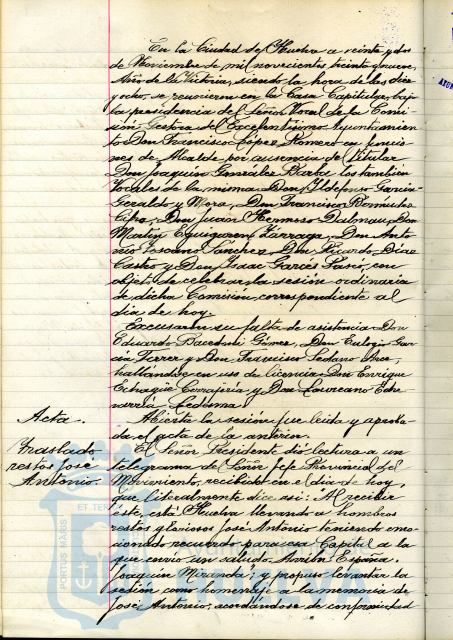 En la Ciudad de Huelva a veinte y dos
de Noviembre de mil novecientos treinta y nueve,
Año de la Victoria, siendo la hora de las diez
y ocho, se reunieron en la Casa Capitular, bajo
la presidencia del Señor Vocal de la Comi-
sión Gestora del Excelentísimo Ayuntamien-
to Don Francisco López Romero en funcio-
nes de Alcalde por ausencia del titular
Don Joaquín González Barba los también
Vocales de la misma Don Ildefonso García
Geraldo y Mora, Don Francisco
Don Juan Hermoso Dalmau, Don
Martín Eguiguren Lizarraga, Don Anto-
nio Sánchez, Don Ricardo Díaz
Castro y Don Isaac Garcés con
objeto de celebrar la sesión ordinaria
de dicha Comisión correspondiente al
día de hoy.
Excusaron su falta de asistencia Don
Eduardo Gómez, Don Eulogio Gar-
cía Ferrer y Don Francisco Lozano
hallándose en uso de licencia Don Enrique
Echagüe y Don Laureano Eche-
verría Ledesma.
Acta.
Abierta la sesión fue leida y aproba-
da el acta de la anterior.
Traslado
restos José
Antonio.
El Señor Presidente dió lectura a un
telegrama del Señor Jefe Provincial del
Movimiento, recibido en el día de hoy,
que literalmente dice así: Al recibir
éste, está Huelva llevando a hombros
restos gloriosos José Antonio teniendo emo-
cionado recuerdo para esa Capital a la
que envío un saludo. Arriba España.
Joaquín Miranda; y propuso levantar la
sesión como homenaje a la memoria de
José Antonio, acordándose de conformidad
PORTUS MARIS
ET TER
Ayuntamiento de
HUELVA